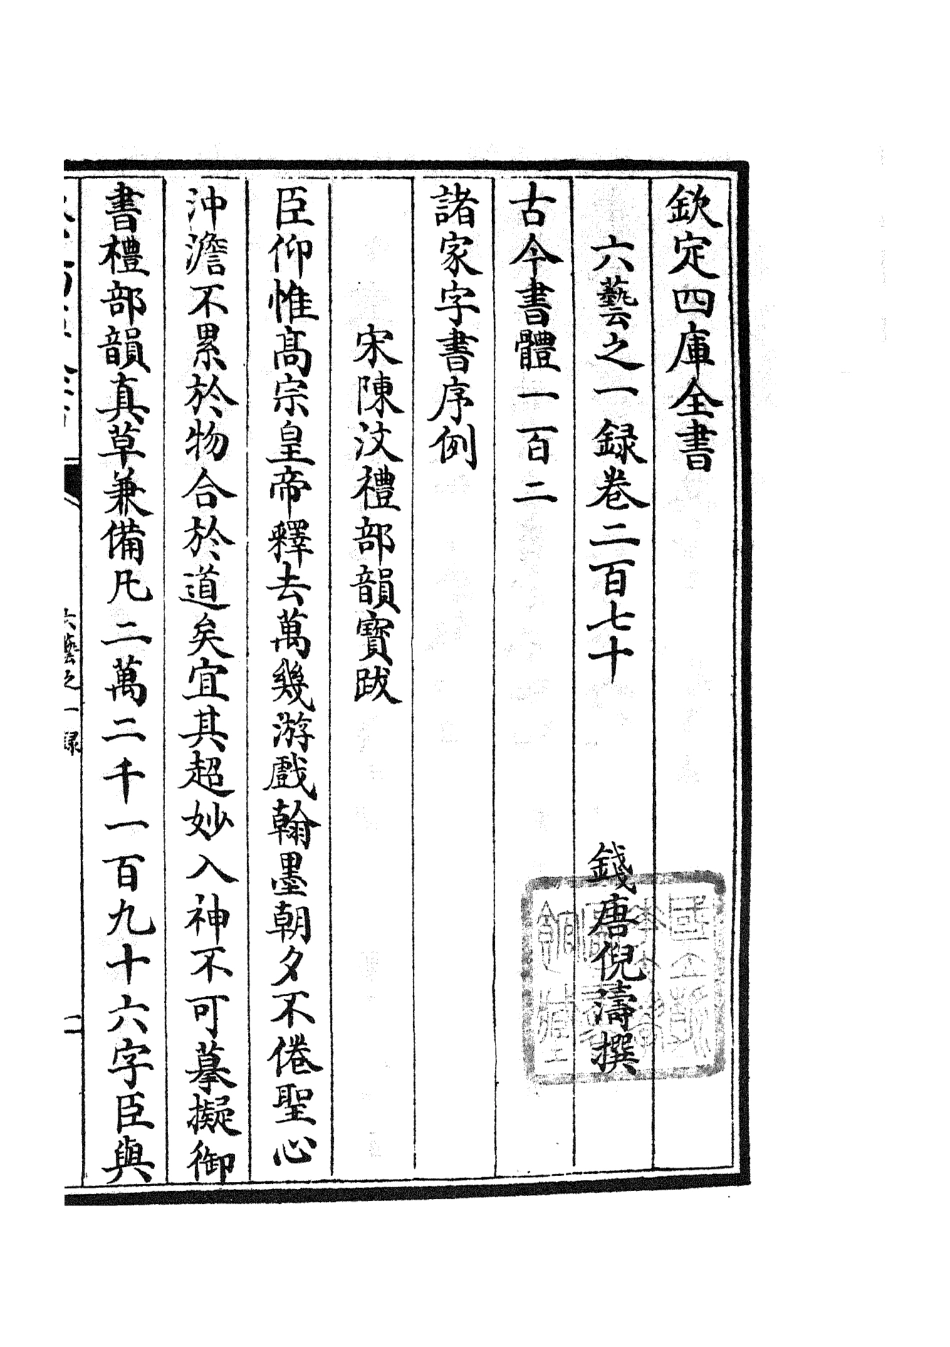 欽定四庫全書
六藝之一録卷二百七十
錢唐倪濤撰
古今書體一百二
諸家字書序例
宋陳汶禮部韻寳跋
臣仰惟髙宗皇帝釋去萬幾游戲翰墨朝夕不倦聖心
沖澹不累於物合於道矣宜其超妙入神不可摹擬御
書禮部韻真草兼備凡二萬二千一百九十六字臣與
六藝之一録